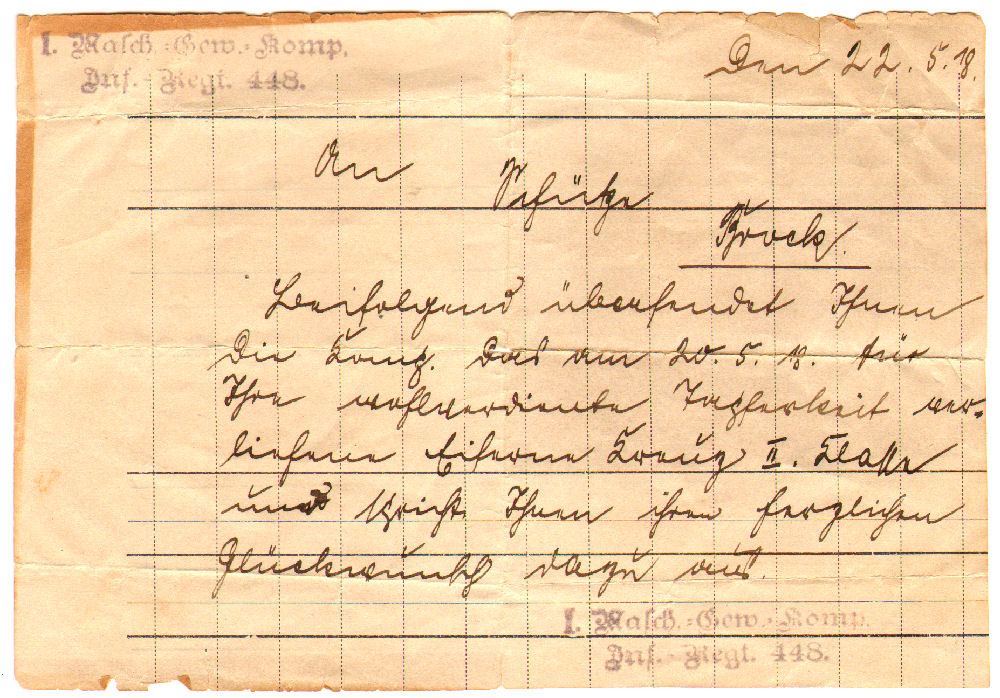 1. Masch.-Gew.-Komp.
Inf.-Regt. 448.
Den 22. 5. 18.
An
Schütze
Brock.
Beifolgend übersendet Ihnen
die Komp. das am 20. 5. 18. für
Ihre wohlverdiente Tapferkeit ver-
liehene Eiserne Kreuz II. Klasse
und spricht Ihnen ihren herzlichen
Glückwunsch dazu aus.
1. Masch.-Gew.-Komp.
Inf.-Regt. 448.